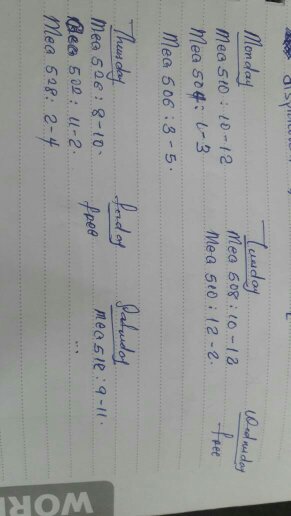 Monday
Mea 510 : 10-12
Mea 504 : 1-3
Mea 506 : 3-5.
Tuesday
Mea 508 : 10-12
Mea 510 : 12-2.
Wednesday
free
Thursday
Mea 526 : 8-10.
502 : 11-2.
Mea 528 : 2-4
Friday
free
Saturday
Mea 512 : 9-11.
WOR